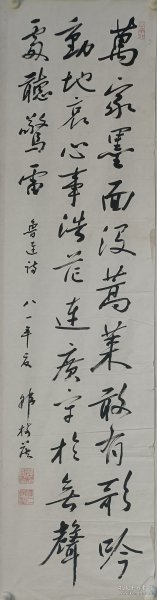 萬家墨面没蒿萊敢有歌吟
動地哀心事浩茫連廣宇於無聲
處聽驚雷 魯迅诗 八一年夏